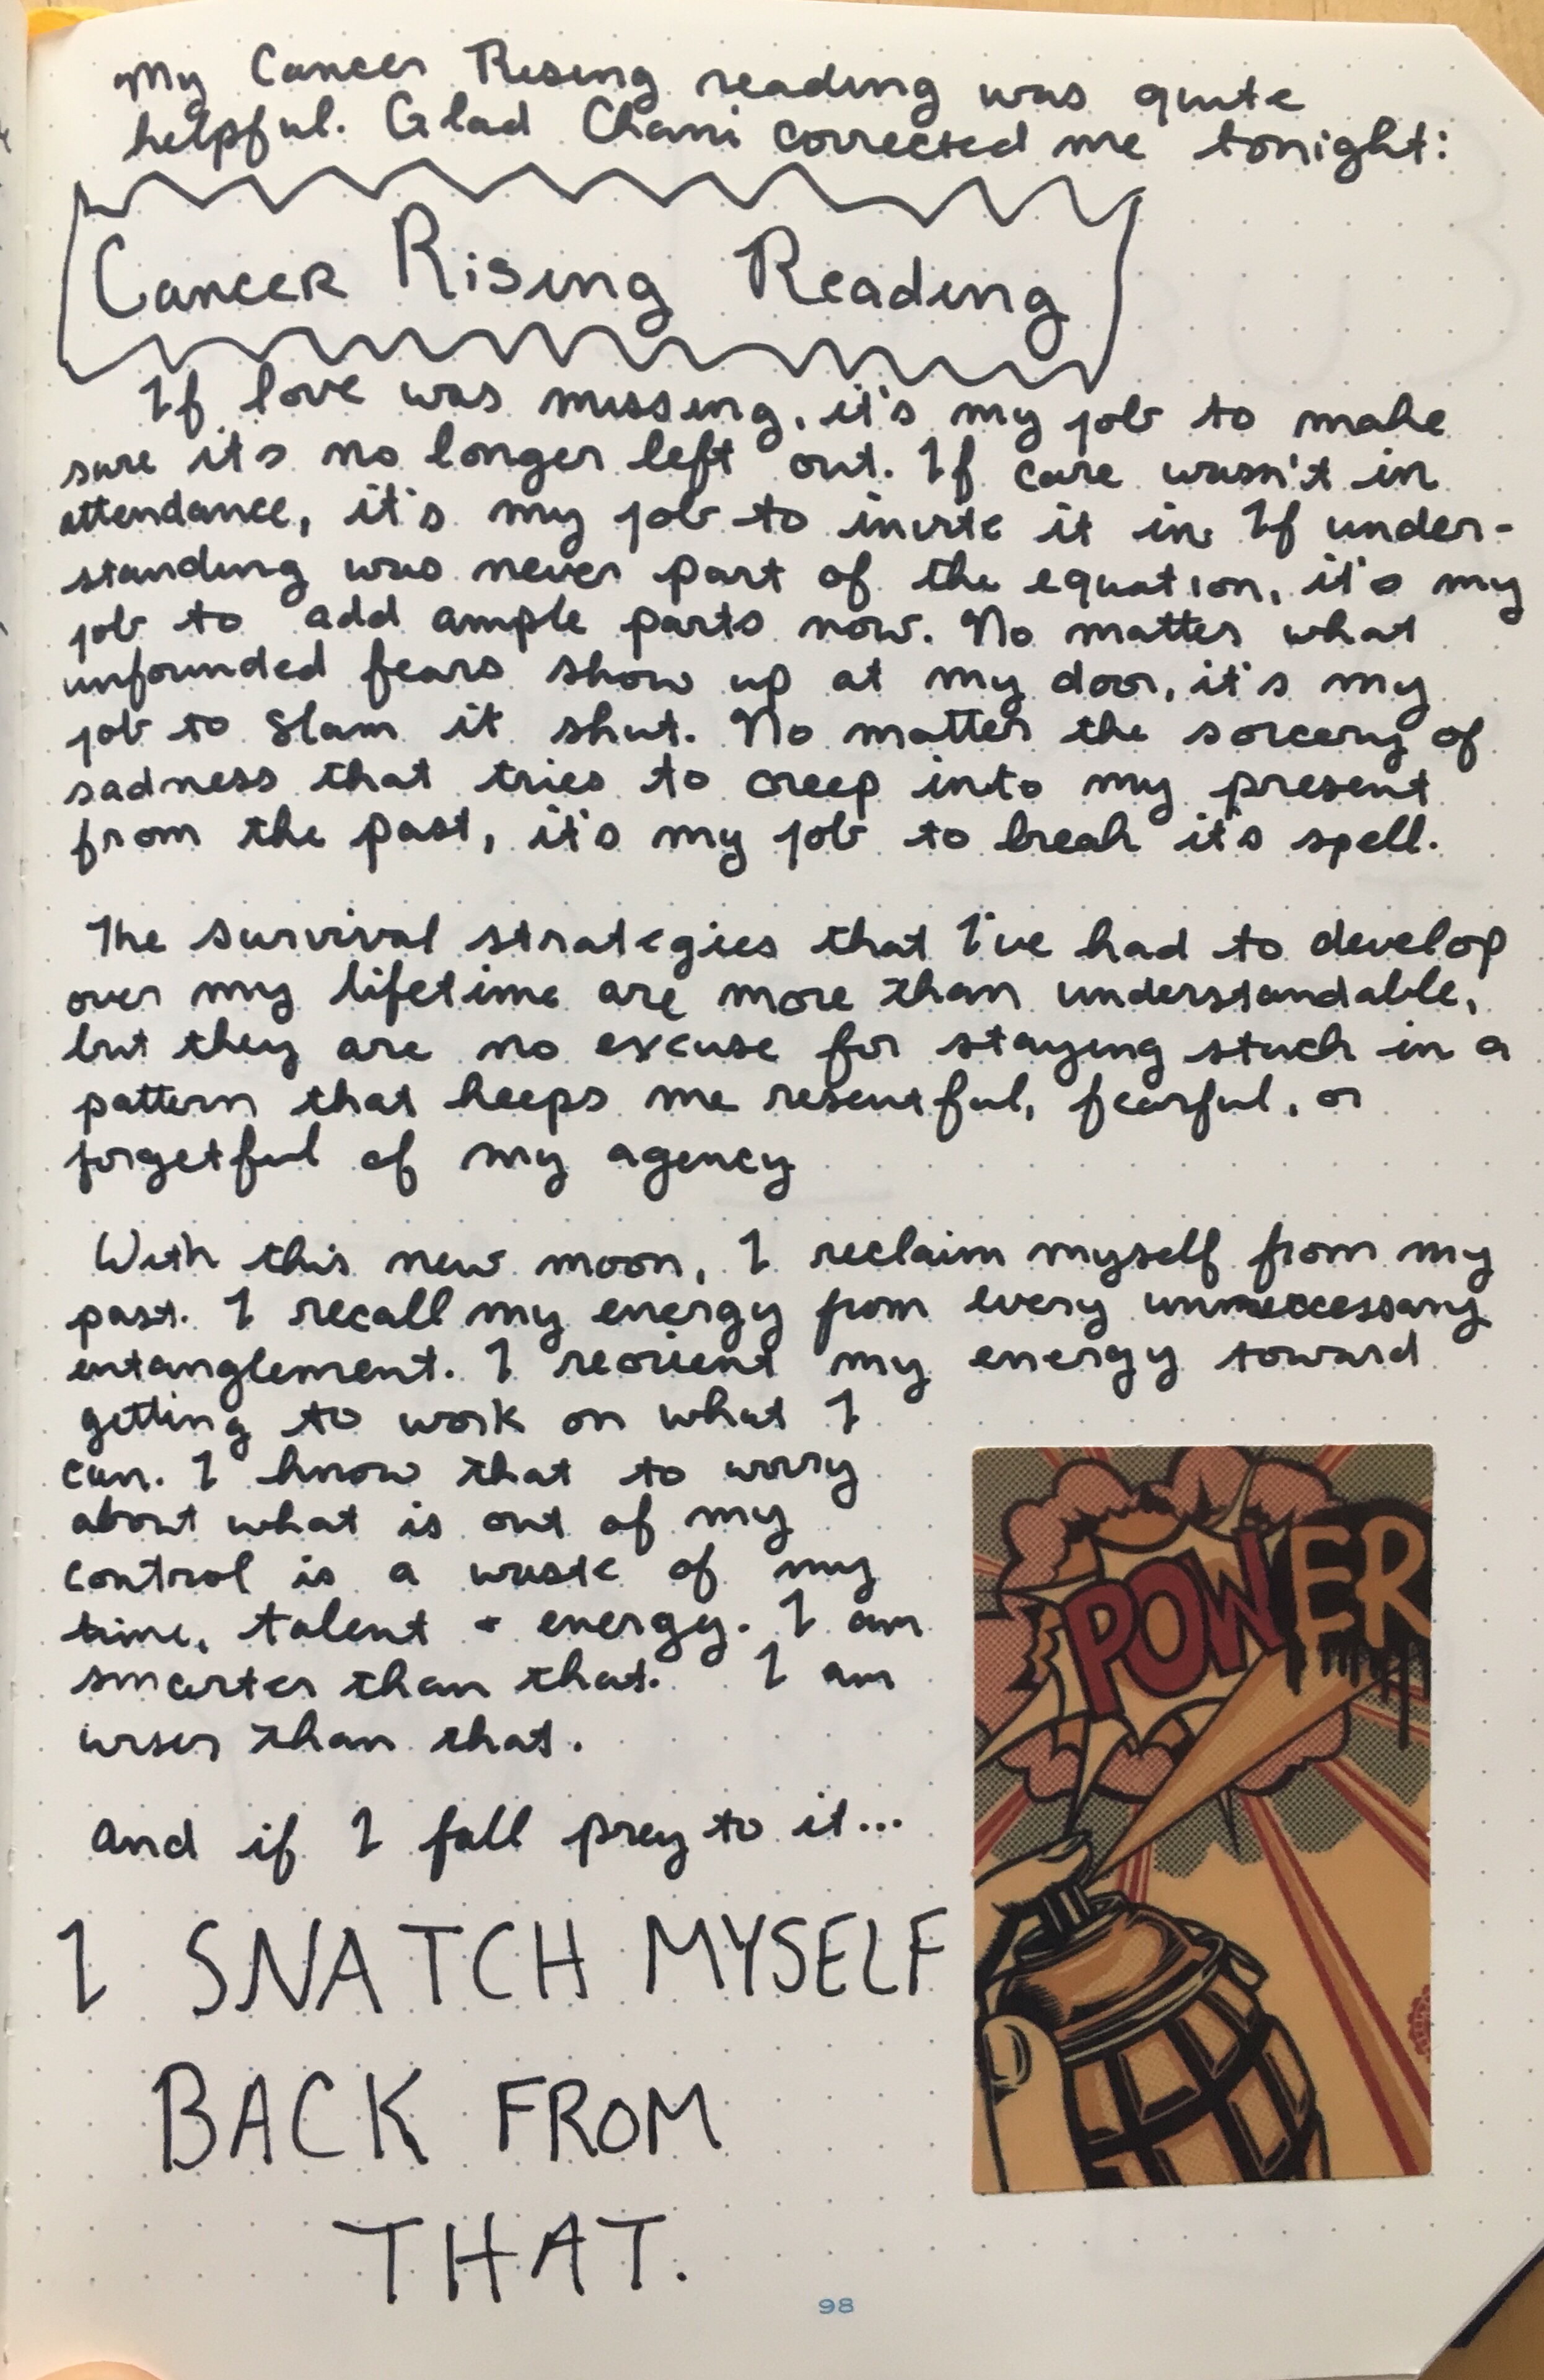 My Cancer Rising reading was quite
helpful. Glad Chani corrected me tonight:
Cancer Rising Reading
If love was missing, it's my job to make
sure it's no longer left out. If care wasn't in
attendance, it's my job to invite it in. If under-
standing was never part of the equation, it's my
job to add ample parts now. No matter what
unfounded fears show up at my door, it's my
job to slam it shut. No matter the sorcery of
sadness that tries to creep into my present
from the past, it's my job to break it's spell.
The survival strategies that I've had to develop
over my lifetime are more than understandable,
but they are no excuse for staying stuck in a
pattern that keeps me resentful, fearful, or
forgetful of my agency
With this new moon, I reclaim myself from my
past. I recall my energy from every unneccessary
entanglement. I reorient my energy toward
getting to work on what I
can. I know that to worry
about what is out of my
control is a waste of my
time, talent + energy. I am
smarter than that. I am
wiser than that.
And if I fall prey to it...
I SNATCH MYSELF
BACK FROM
THAT.
POWER
98